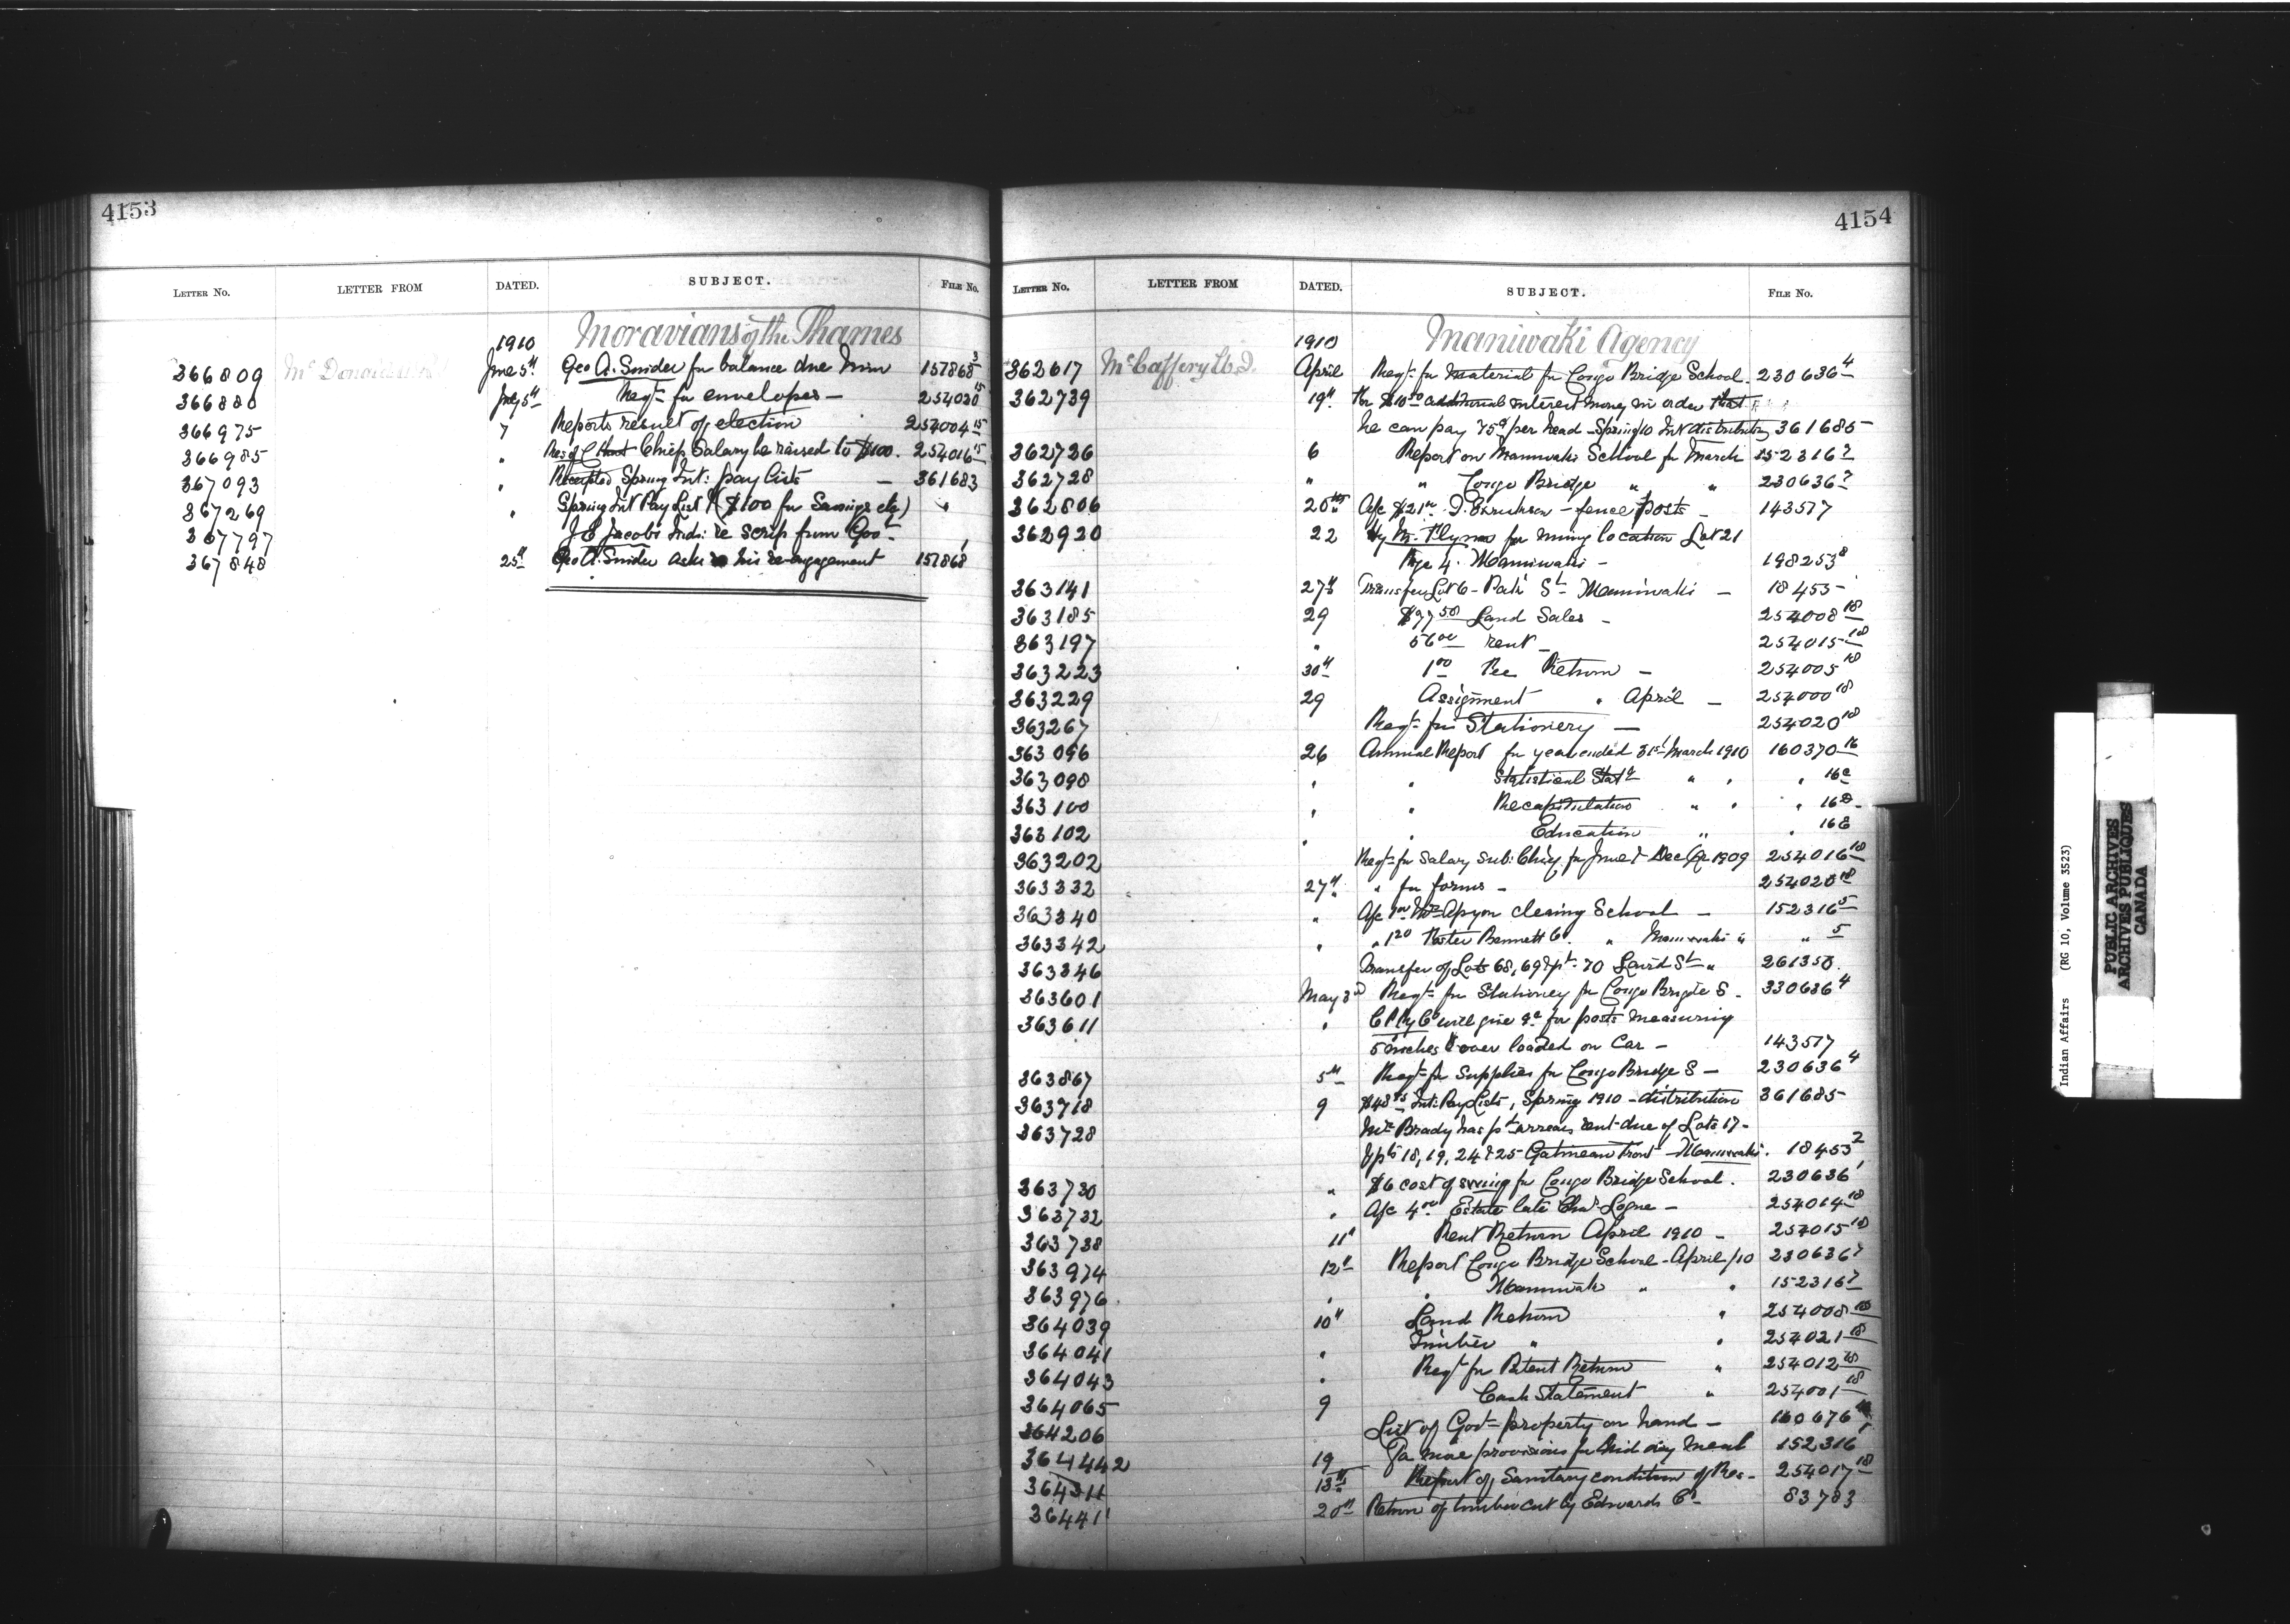 4153
LETTER NO. LETTER FROM DATED. SUBJECT. FILE No.
1910 Moravians of the Thames
366809 McDonald June 5th Geo A. Snider for balance due him 157868 3
366880 July 5th Reqn for envelopes — 254020 15
366975 7 Reports result of election 254004 15
366985 " Chief Salary be raised to $100. 254016 15
367093 " Receipted Spring Int: pay lists — 361683
367269 " Spring Int Pay List ($100 for Savings etc) "
367797 J E Jacobs Ind: re scrip from Govt
367848 25th Geo A. Snider asks his re-engagement 157868
4154
LETTER NO. LETTER FROM DATED. SUBJECT. FILE No.
1910 Maniwaki Agency
362617 McCaffery April Reqn for Material for Congo Bridge School. 230636 4
362739 19th For $10 additional interest money in order that
he can pay 75c per head - Spring/10 Int distribution 361685
362726 6 Report on Maniwaki School for March 152316 7
362728 " " Congo Bridge " " 230636 7
362806 20th A/c $21 - fence posts - 143517
362920 22 for mining location Lot 21
Rge 4. Maniwaki - 198253 8
363141 27th Transfer Lot 6 - St Maniwaki — 18453
363185 29 $97 50 Land Sales - 254008 18
363197 " 56 00 rent - 254015 18
363223 30th 1 00 Fee Return - 254005 18
363229 29 Assignment " April — 254000 18
363267 Reqn for Stationery — 254020 18
363096 26 Annual Report for year ended 31st March 1910 160370 16
363098 " " Statistical Statt " " " 16c
363100 " " Recapitulation " " " 16D
363102 " " Education " " 16E
363202 Reqn for Salary Sub: Chief for June & Dec Qr 1909 254016 18
363332 27th " for forms - 254020 18
363340 " A/c cleaning School — 152316 5
363342 " " 1 20 Bennett Co. " Maniwaki " " 5
363346 Transfer of Lots 68, 69 & pt. 70 Laird St " 261350.
363601 May 3rd Reqn for Stationery for Congo Bridge S - 330636 4
363611 " C P Ry Co will give for posts measuring
5 inches & over loaded on Car — 143517
363867 5th Reqn for Supplies for Congo Bridge S — 230636 4
363718 9 $48 Int: Pay Lists, Spring 1910 - distribution 361685
363728 Mrs Brady has pd arrears rent due of Lots 17-
pts 18, 19, 24 & 25 Gatineau Front - Maniwaki. 18453 2
363730 " $6 cost of for Congo Bridge School. 230636 1
363732 " A/c 4 00 Estate late Chas Logue — 254014 18
363738 11th Rent Return April 1910 - 254015 18
363974 12th Report Congo Bridge School - April/10 230636 7
363976 " " Maniwaki " " 152316 7
364039 10th Land Return " 254008 18
364041 " Timber " " 254021 18
364043 " Reqn for Patent Return " 254012 18
364065 9 Cash Statement " 254001 18
364206 List of Govt property on hand — 160676
364442 19 provisions for Mid day meal 152316 1
364311 13th Report of Sanitary condition of Res - 254017 18
36441 20th Return of timber cut by Edwards Co - 83783
Indian Affairs (RG 10, Volume 3523)
PUBLIC ARCHIVES
ARCHIVES PUBLIQUES
CANADA